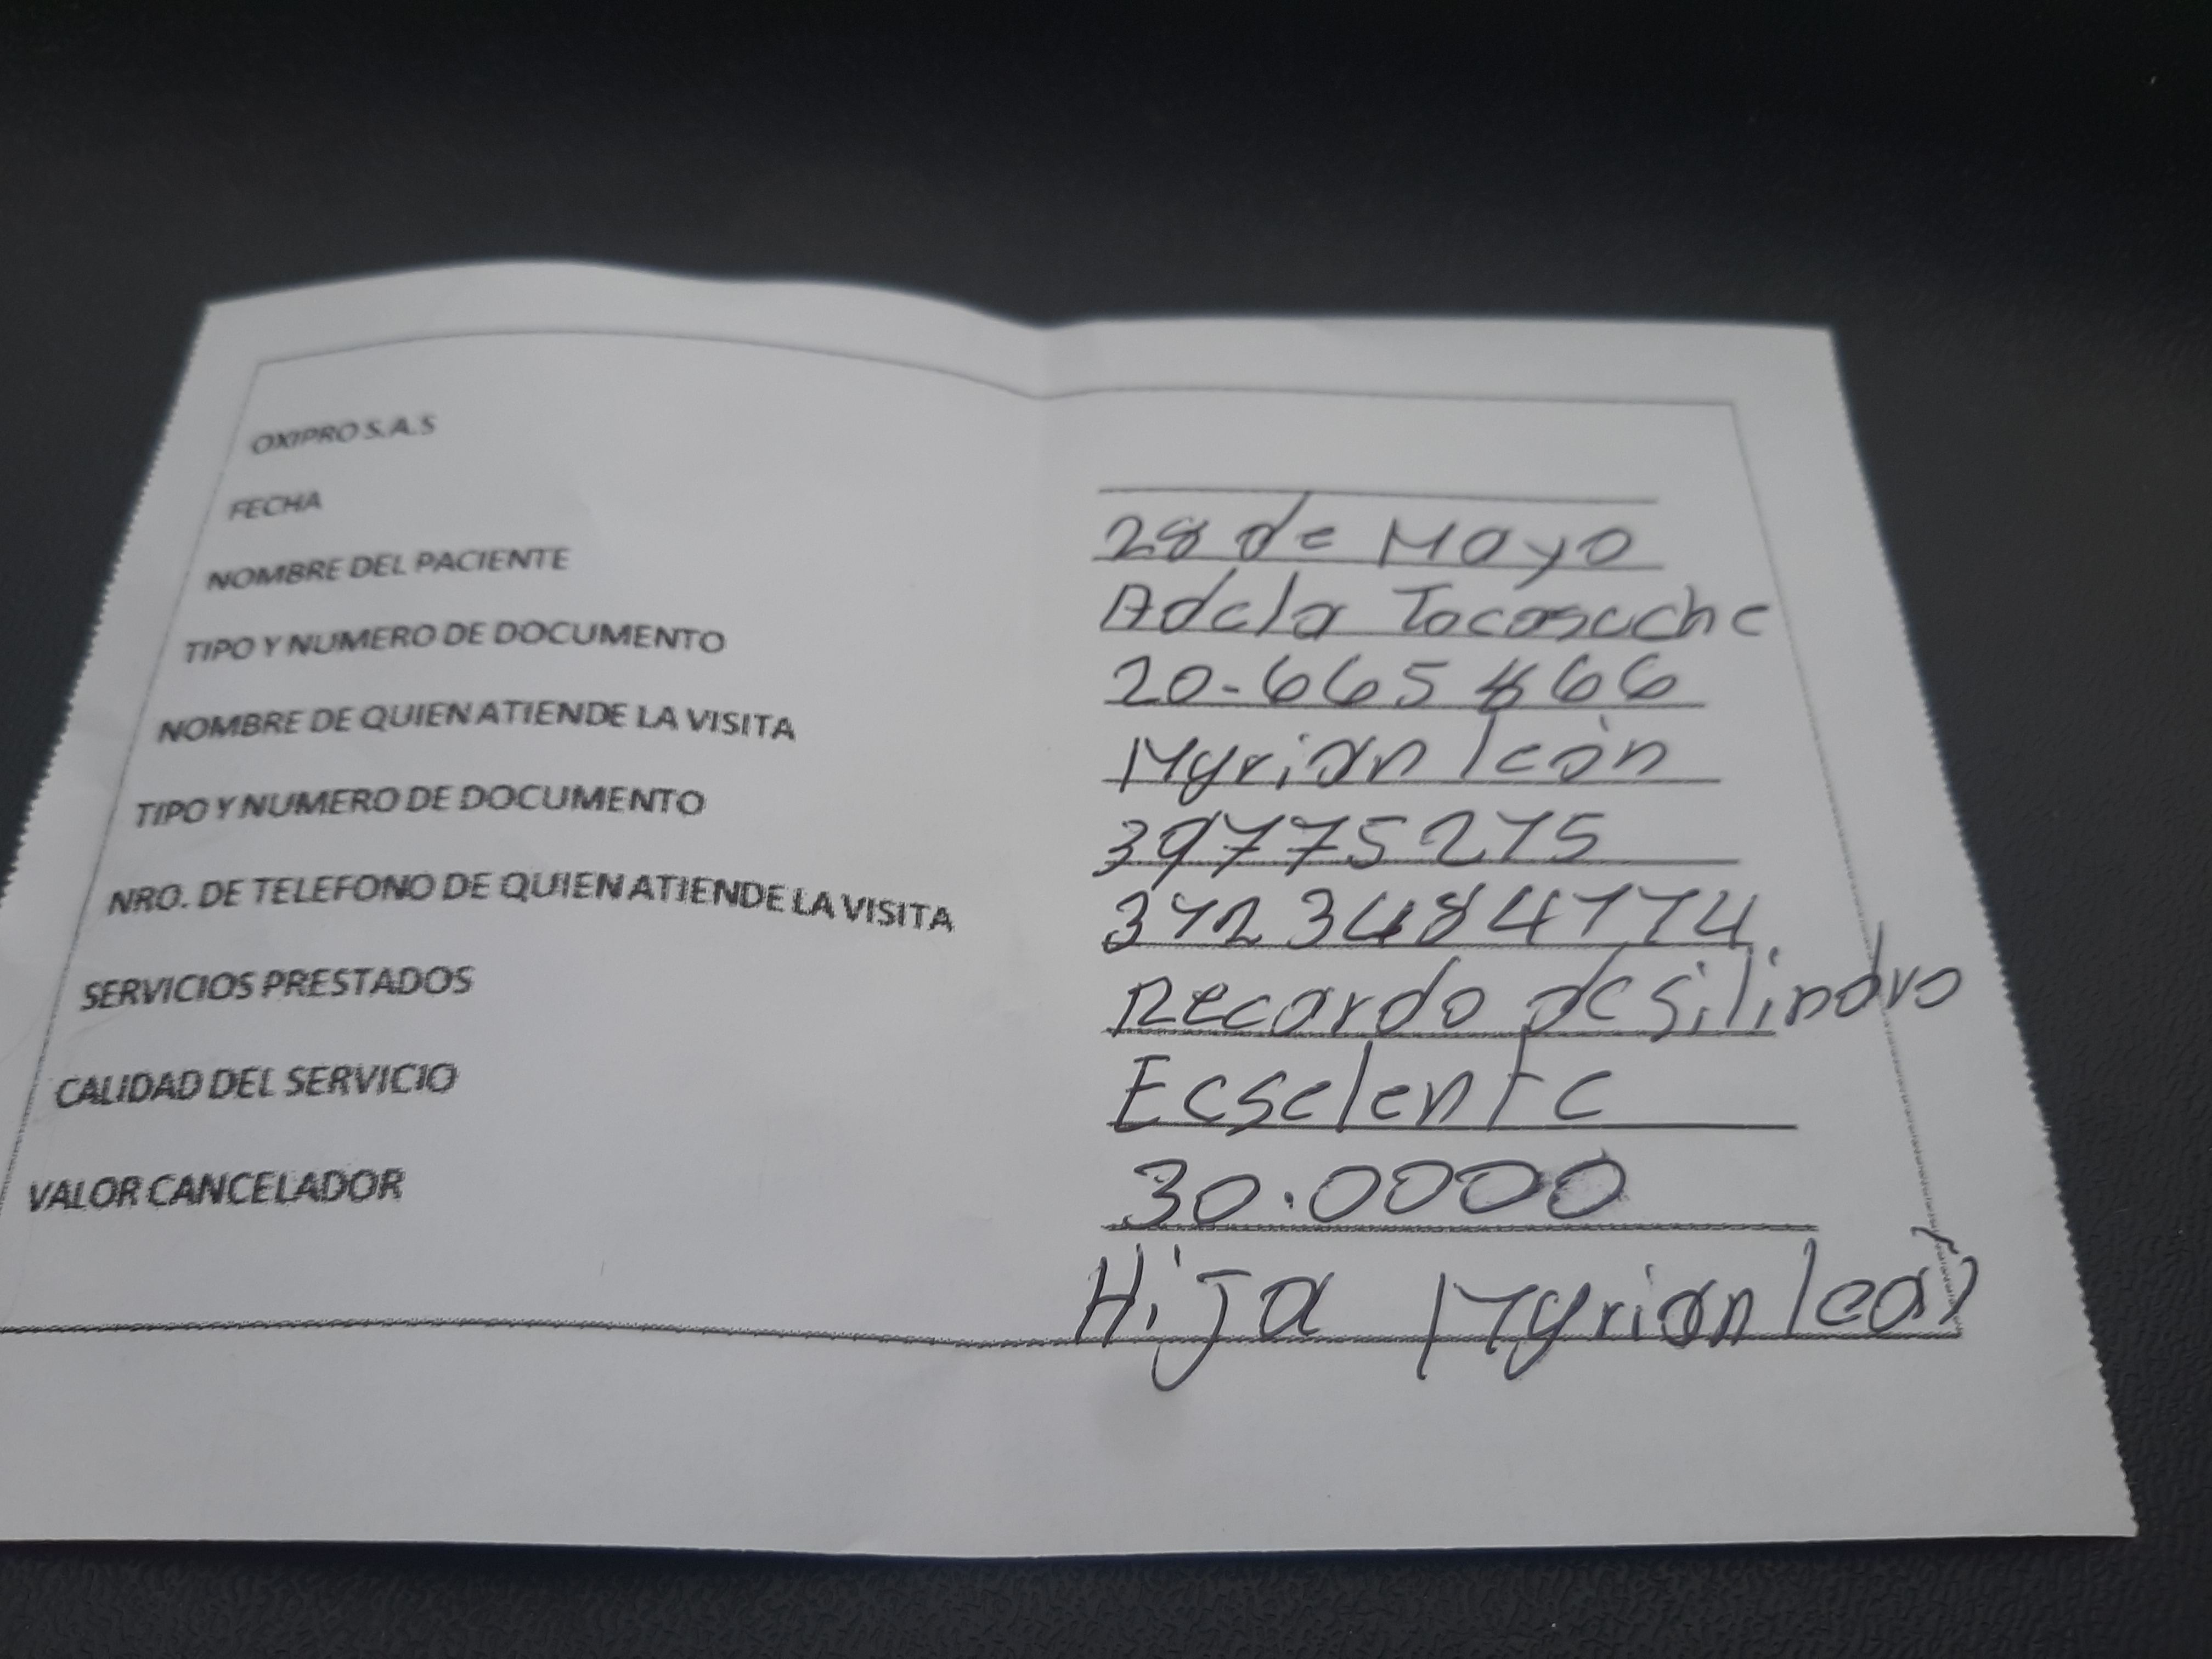 OXIPRO S.A.S
FECHA 28 de Mayo
NOMBRE DEL PACIENTE Adela Tocasuche
TIPO Y NUMERO DE DOCUMENTO 20-665 866
NOMBRE DE QUIEN ATIENDE LA VISITA Myrian león
TIPO Y NUMERO DE DOCUMENTO 39775215
NRO. DE TELEFONO DE QUIEN ATIENDE LA VISITA
SERVICIOS PRESTADOS Recardo de silindro
CALIDAD DEL SERVICIO Ecselente
VALOR CANCELADOR 30.0000
Hija Myrian león